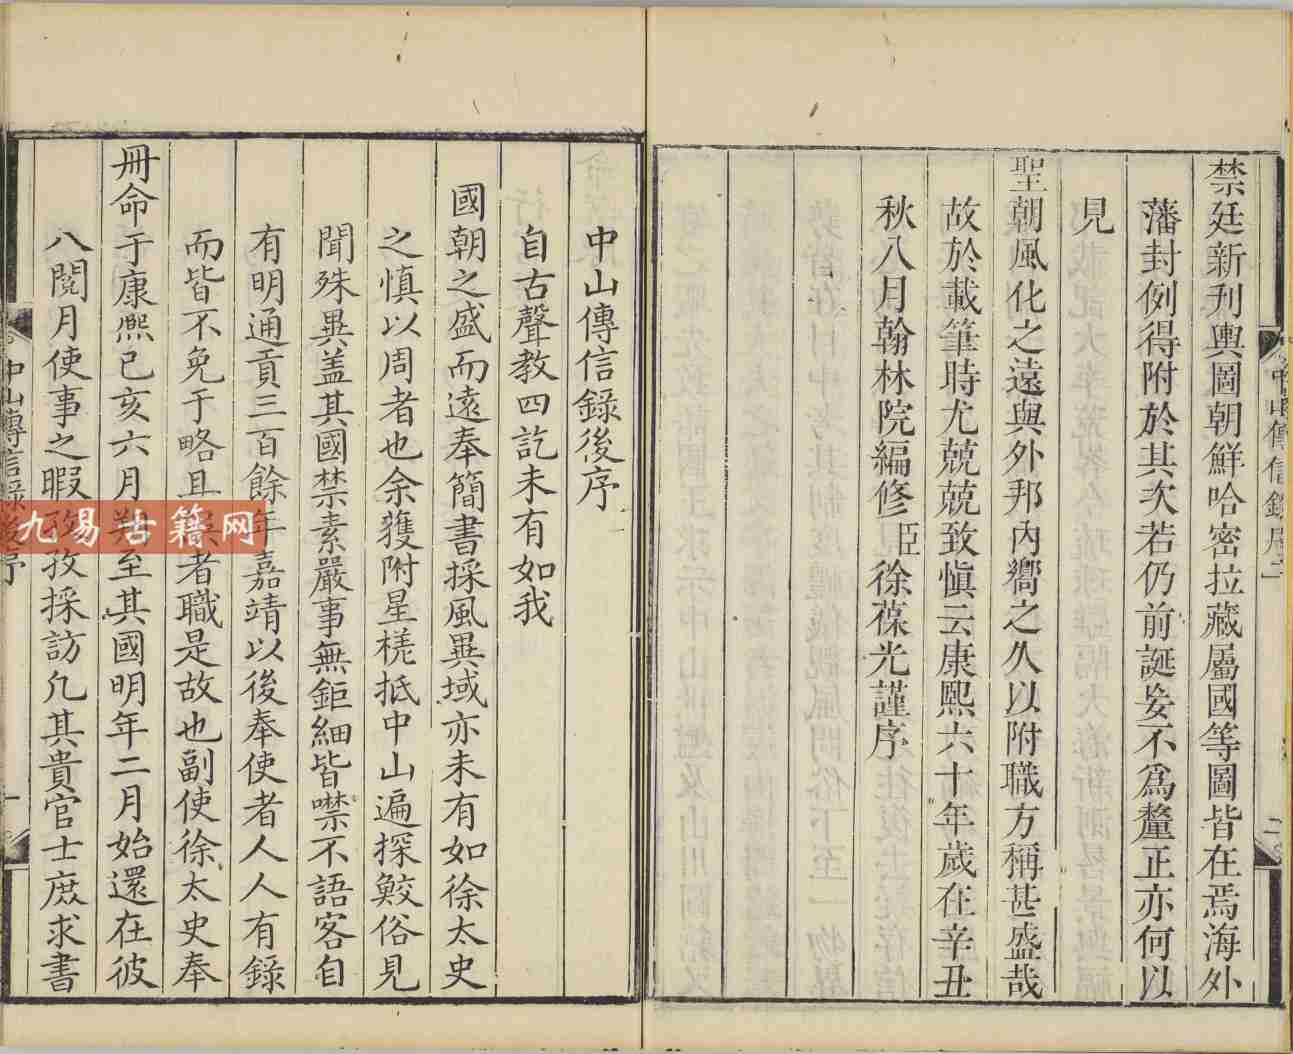 禁廷新刋輿圖朝鮮哈密拉藏屬國等圖皆在焉海外
藩封例得附於其次若仍前誕妄不爲釐正亦何以
見
聖朝風化之遠與外邦內嚮之久以附職方稱甚盛哉
故於載筆時尤兢兢致愼云康熙六十年歲在辛丑
秋八月翰林院編修臣徐葆光謹序
中山傳信錄後序
自古聲教四訖未有如我
國朝之盛而遠奉簡書採風異域亦未有如徐太史
之慎以周者也余獲附星槎抵中山遍探鮫俗見
聞殊異盖其國禁素嚴事無鉅細皆噤不語客自
有明通貢三百餘年嘉靖以後奉使者人人有錄
而皆不免于略且者職是故也副使徐太史奉
冊命于康熙已亥六月至其國明年二月始還在彼
八閱月使事之暇孜採訪凢其貴官士庶求書
中山傳信錄後序
一
九易古籍网